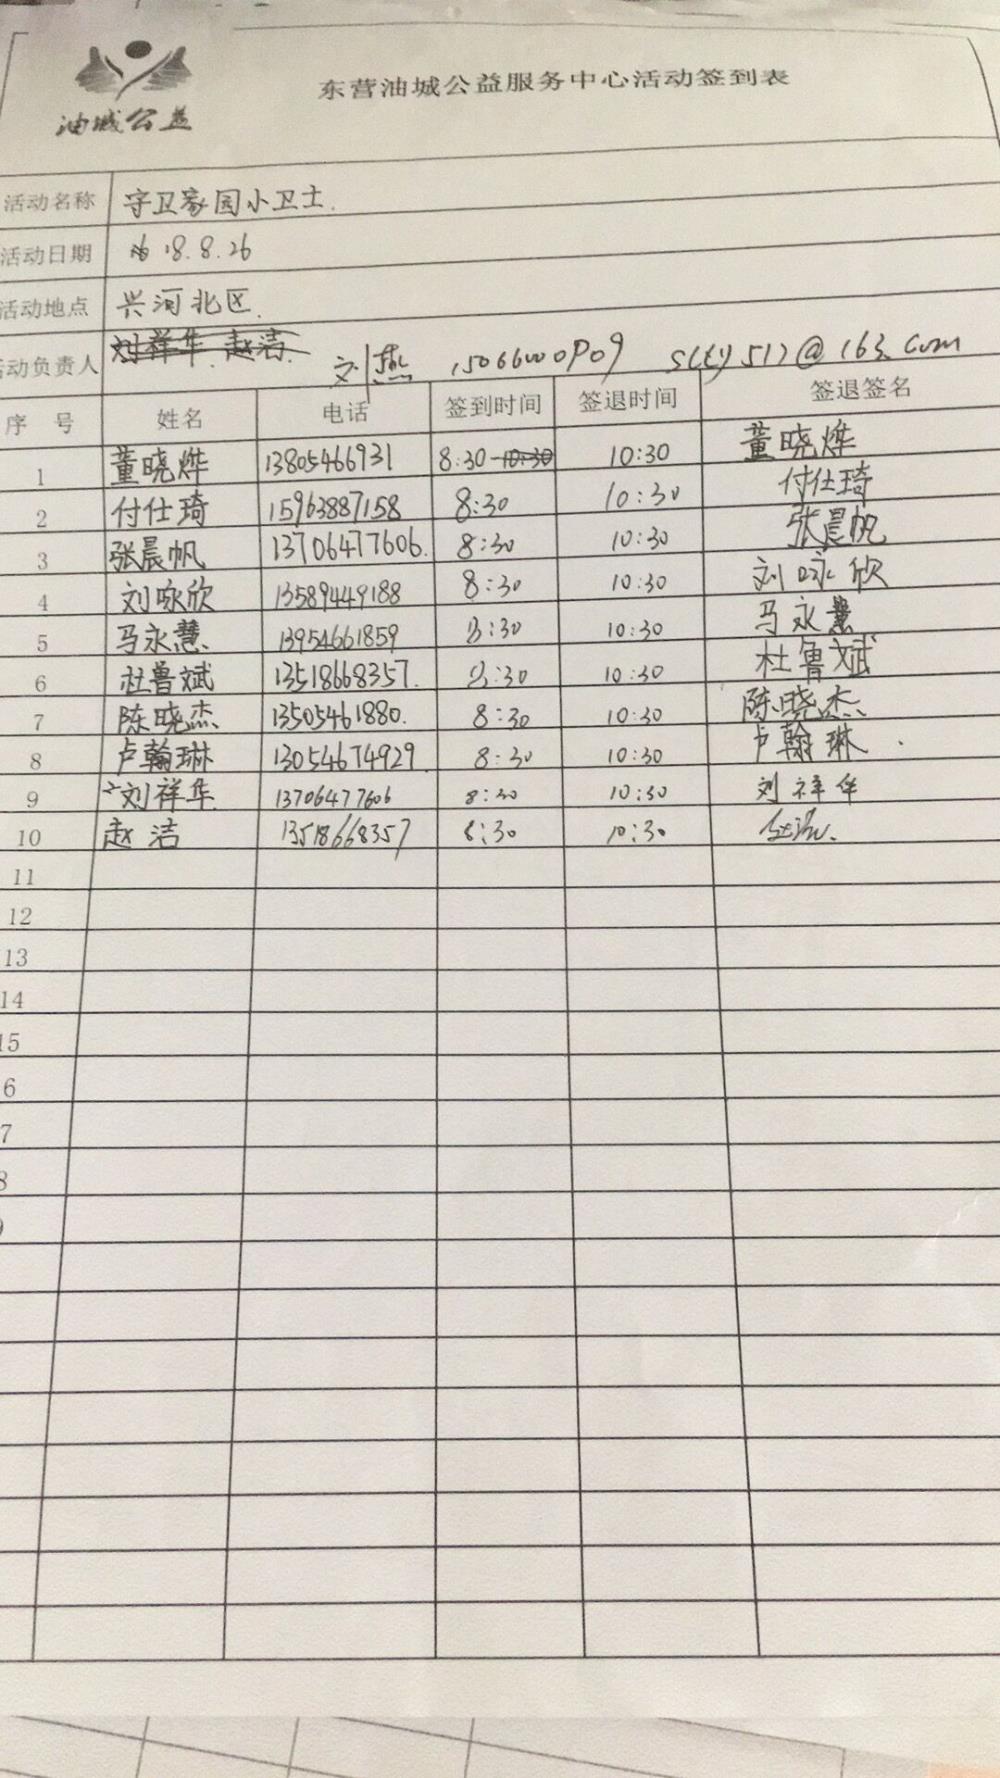 油城公益
东营油城公益服务中心活动签到表
活动名称 守卫家园小卫士.
活动日期 18.8.26
活动地点 兴河北区.
活动负责人 刘祥华 赵洁. 刘燕 @163.com
序 号 姓名 电话 签到时间 签退时间 签退签名
1 董晓烨 13805466931 8:30-10:30 10:30 董晓烨
2 付仕琦 15963887158 8:30 10:30 付仕琦
3 张晨帆 13706477606. 8:30 10:30 张晨帆
4 刘咏欣 13589449188 8:30 10:30 刘咏欣
5 马永慧. 13954661859 8:30 10:30 马永慧
6 杜鲁斌 13518668357. 8:30 10:30 杜鲁斌
7 陈晓杰 13505461880. 8:30 10:30 陈晓杰
8 卢翰琳 13054674929 8:30 10:30 卢翰琳
9 刘祥华 13706477606 8:30 10:30 刘祥华
10 赵洁 13518668357 8:30 10:30
11
12
13
14
15
6
7
8
9